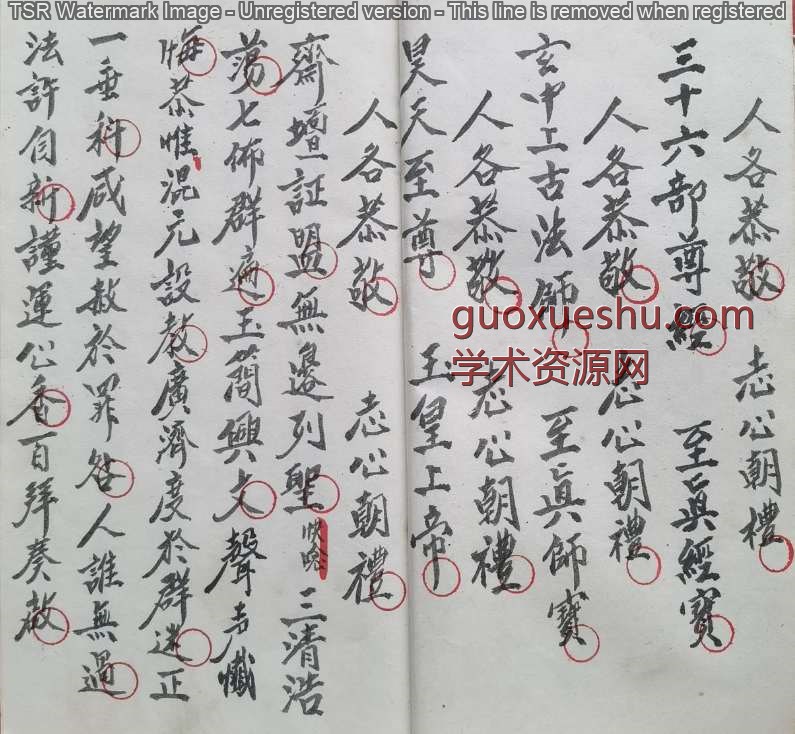 TSR Watermark Image - Unregistered version - This line is removed when registered
人各恭敬 志心朝禮
三十六部尊經 至眞經寶
人各恭敬 志心朝禮
玄中上古法師 至眞師寶
人各恭敬 志心朝禮
昊天至尊 玉皇上帝
人各恭敬 志心朝禮
齋壇証盟無邊列聖 三清浩
蕩七佈群 玉簡興文聲 懺
悔恭惟混元設教廣濟度於群迷正
一垂科咸望赦於罪咎人誰無過
法許自新謹運心香百拜奏啟
guoxueshu.com
学术资源网